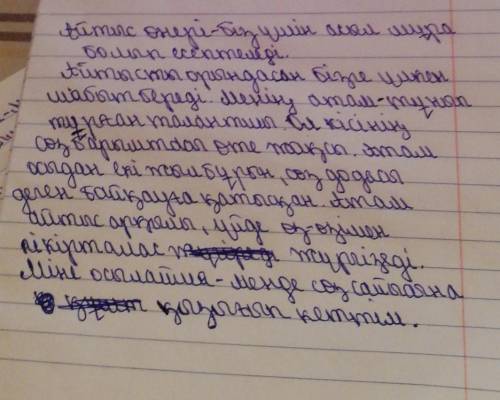 Айтыс өнері-біз үшін асыл мұра
болып есептеледі.
Айтысты орындасаң бізге үлкен
шабыт береді. Менің атам-тұнып
тұрған талантты. Ол кісінің
сөз барымтасы өте жақсы. Атам
осыдан екі жыл бұрын, сөз додасы
деген байқауға қатысқан. Атам
айтыс арқылы, үйде өз-өзімен
пікірталас жүргізеді.
Міне осылайша-менде сөз сайысына
қызығып кеттім.